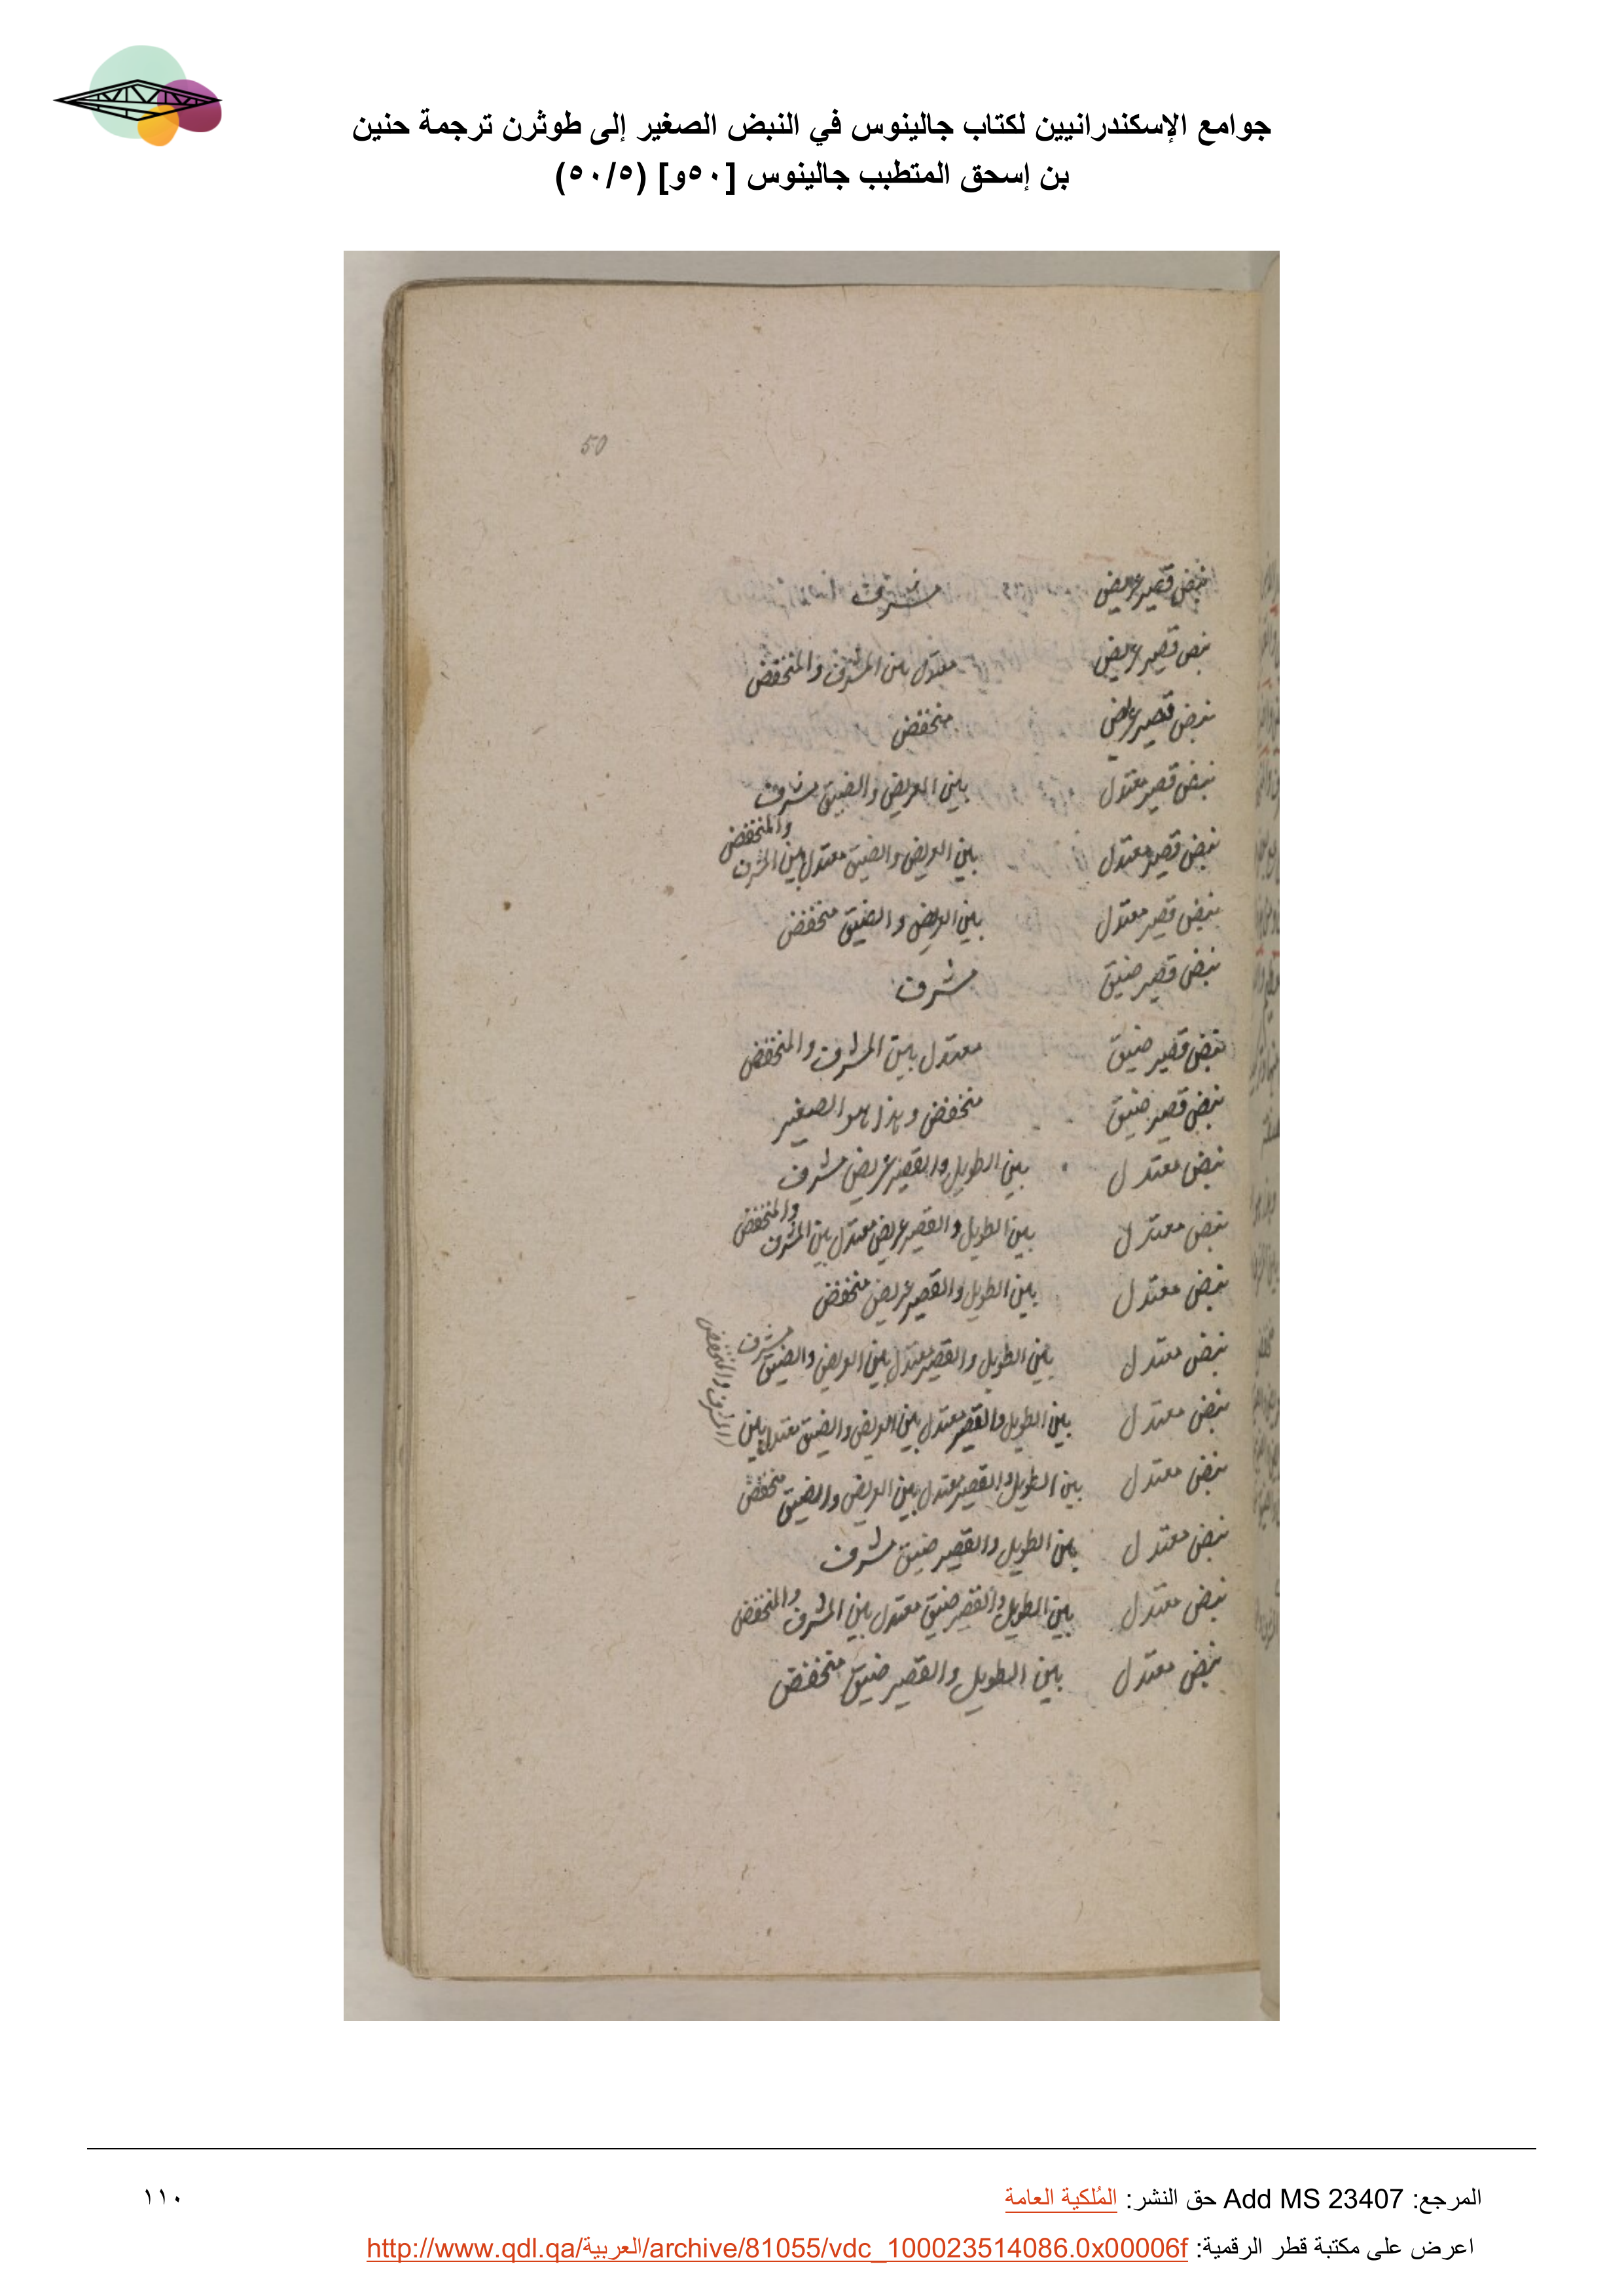 جوامع الإسكندرانيين لكتاب جالينوس في النبض الصغير إلى طوثرن ترجمة حنين
بن إسحق المتطبب جالينوس [٥٠و] (٥٠/٥)
50
نبض قصير عريض مشرف
نبض قصير عريض معتدل بين المشرف والمنخفض
نبض قصير عريض منخفض
نبض قصير معتدل بين العريض والضيق مشرف
نبض قصير معتدل بين العريض والضيق معتدل بين المشرف والمنخفض
نبض قصير معتدل بين العريض والضيق منخفض
نبض قصير ضيق مشرف
نبض قصير ضيق معتدل بين المشرف والمنخفض
نبض قصير ضيق منخفض وهذا هو الصغير
نبض معتدل بين الطويل والقصير عريض مشرف
نبض معتدل بين الطويل والقصير عريض معتدل بين المشرف والمنخفض
نبض معتدل بين الطويل والقصير عريض منخفض
نبض معتدل بين الطويل والقصير معتدل بين العريض والضيق مشرف
نبض معتدل بين الطويل والقصير معتدل بين العريض والضيق معتدل بين المشرف والمنخفض
نبض معتدل بين الطويل والقصير معتدل بين العريض والضيق منخفض
نبض معتدل بين الطويل والقصير ضيق مشرف
نبض معتدل بين الطويل والقصير ضيق معتدل بين المشرف والمنخفض
نبض معتدل بين الطويل والقصير ضيق منخفض
المرجع: Add MS 23407 حق النشر: المُلكية العامة
١١٠
اعرض على مكتبة قطر الرقمية: http://www.qdl.qa/العربية/archive/81055/vdc_100023514086.0x00006f